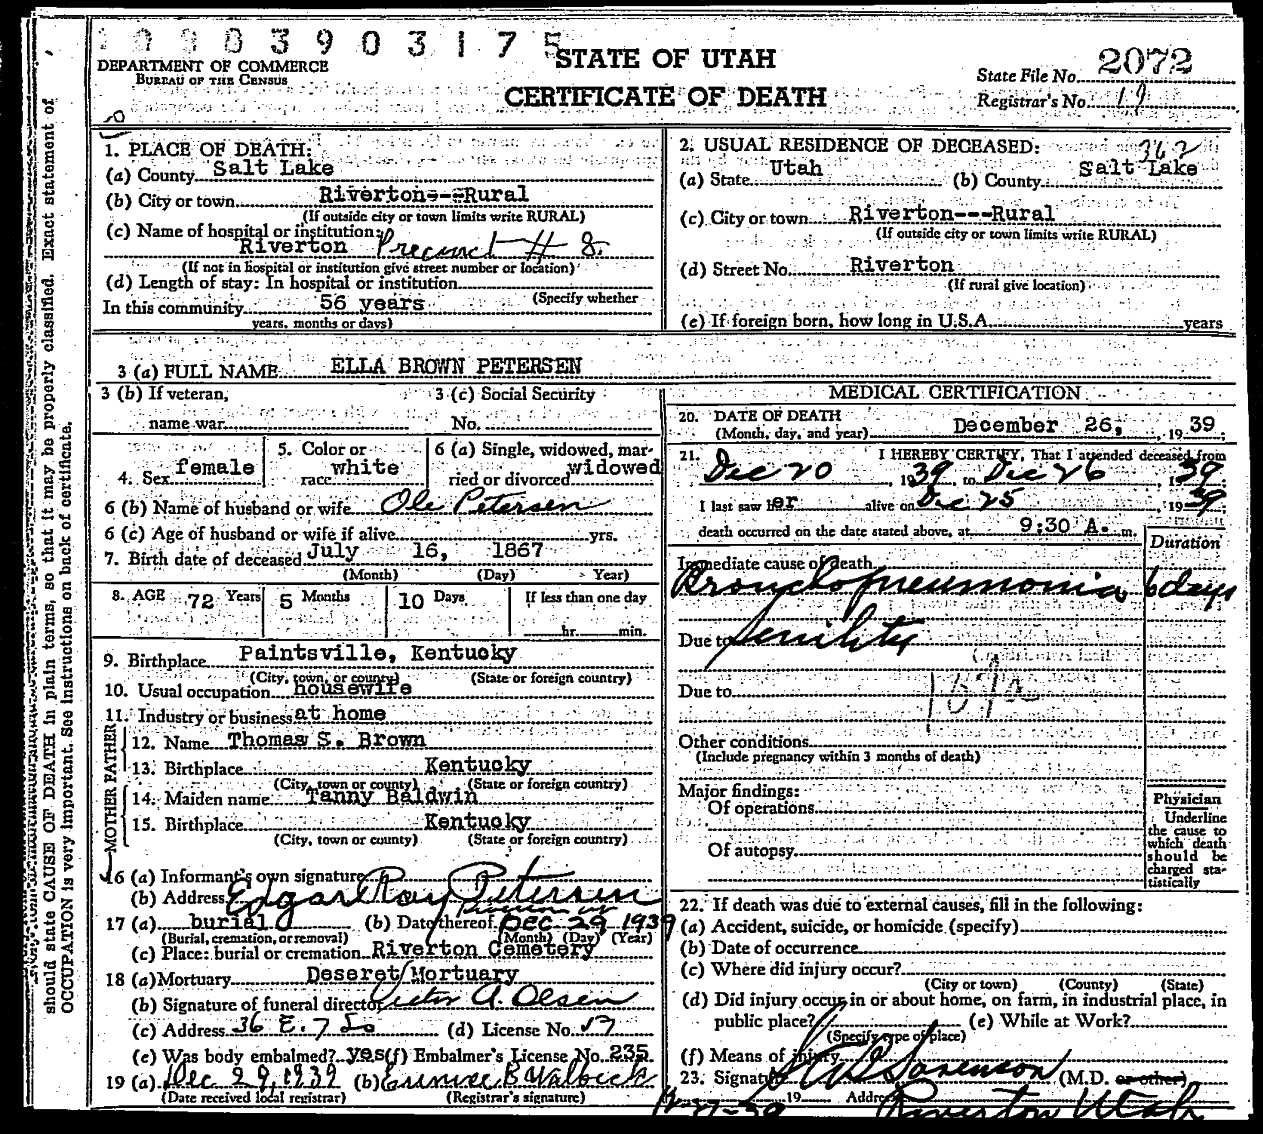 3903175
STATE OF UTAH
DEPARTMENT OF COMMERCE
BUREAU OF THE CENSUS
CERTIFICATE OF DEATH
State File No. 2072
Registrar's No. 19
1. PLACE OF DEATH:
(a) County Salt Lake
(b) City or town Riverton--Rural
(If outside city or town limits write RURAL)
(c) Name of hospital or institution:
Riverton Precinct # 8
(If not in hospital or institution give street number or location)
(d) Length of stay: In hospital or institution
(Specify whether
In this community 56 years
years, months or days)
2. USUAL RESIDENCE OF DECEASED: 362
(a) State Utah (b) County Salt Lake
(c) City or town Riverton---Rural
(If outside city or town limits write RURAL)
(d) Street No. Riverton
(If rural give location)
(e) If foreign born, how long in U.S.A. years
3 (a) FULL NAME ELLA BROWN PETERSEN
3 (b) If veteran, 3 (c) Social Security
name war No.
4. Sex female 5. Color or race white 6 (a) Single, widowed, married or divorced widowed
6 (b) Name of husband or wife Ole Petersen
6 (c) Age of husband or wife if alive yrs.
7. Birth date of deceased July 16, 1867
(Month) (Day) Year)
8. AGE 72 Years 5 Months 10 Days If less than one day
hr. min.
9. Birthplace Paintsville, Kentucky
(City, town, or county) (State or foreign country)
10. Usual occupation housewife
11. Industry or business at home
FATHER
12. Name Thomas S. Brown
13. Birthplace Kentucky
(City, town or county) (State or foreign country)
MOTHER
14. Maiden name Tanny Baldwin
15. Birthplace Kentucky
(City, town or county) (State or foreign country)
16 (a) Informant's own signature
(b) Address Edgar Ray Petersen
17 (a) burial (b) Date thereof Dec 29 1939
(Burial, cremation, or removal) (Month) (Day) (Year)
(c) Place: burial or cremation Riverton Cemetery
18 (a) Mortuary Deseret Mortuary
(b) Signature of funeral director Victor A. Olsen
(c) Address 36 E. 7 So (d) License No. 17
(e) Was body embalmed? yes (f) Embalmer's License No. 235
19 (a) Dec 29, 1939 (b)
(Date received local registrar) (Registrar's signature)
MEDICAL CERTIFICATION
20. DATE OF DEATH
(Month, day, and year) December 26, 1939
21. I HEREBY CERTIFY, That I attended deceased from
Dec 20, 1939 to Dec 26, 1939
I last saw her alive on Dec 25, 1939
death occurred on the date stated above, at 9:30 A. m.
Duration
Immediate cause of death
Bronchopneumonia 6 days
Due to senility
Due to
107a
Other conditions
(Include pregnancy within 3 months of death)
Major findings:
Of operations
Of autopsy
Physician
Underline
the cause to
which death
should be
charged sta-
tistically
22. If death was due to external causes, fill in the following:
(a) Accident, suicide, or homicide (specify)
(b) Date of occurrence
(c) Where did injury occur?
(City or town) (County) (State)
(d) Did injury occur in or about home, on farm, in industrial place, in
public place? (e) While at Work?
(Specify type of place)
(f) Means of injury
23. Signature Sorenson (M.D. or other)
12-27-39 19 Address Riverton Utah
should state CAUSE OF DEATH in plain terms, so that it may be properly classified. Exact statement of
OCCUPATION is very important. See instructions on back of certificate.